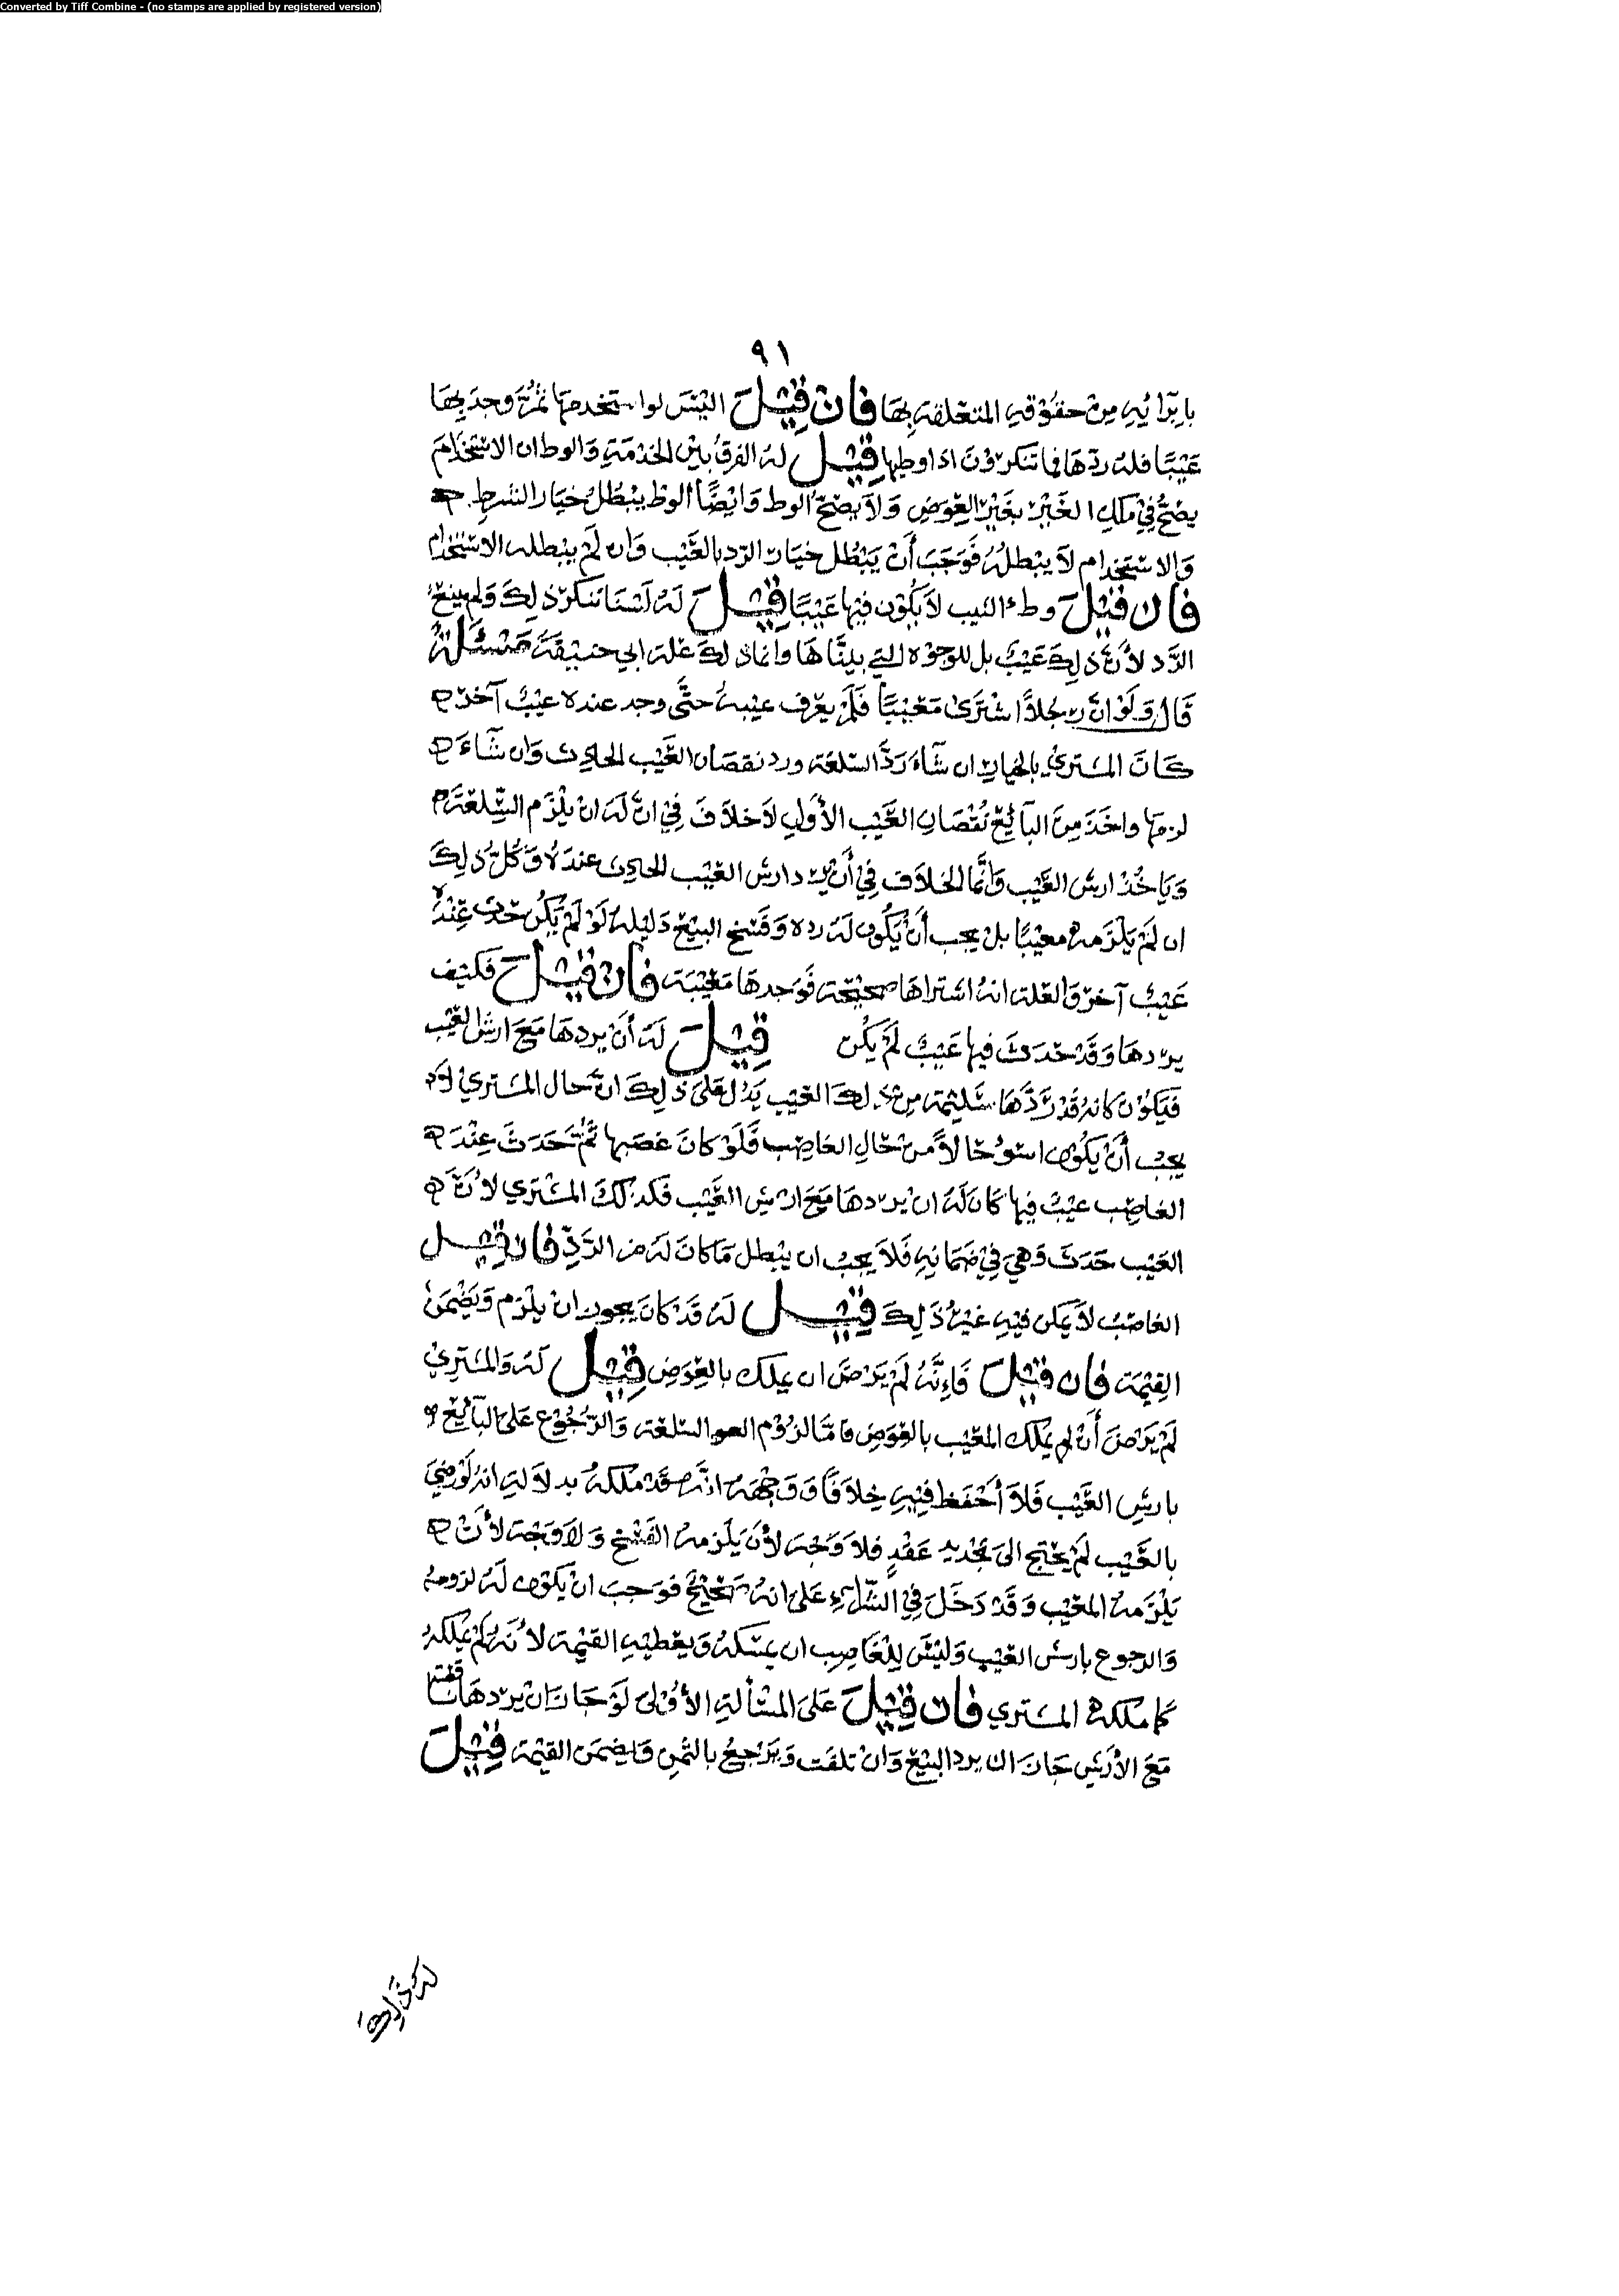 Converted by Tiff Combine - (no stamps are applied by registered version)
٩١
بابرائه من حقوقه المتعلقة بها فان قيل اليس لو استخدمها ثم وجد بها
عيبًا فله ردها فما تنكرون اذا وطيها قيل له الفرق بين الخدمة والوط ان الاستخدام
يصح في ملك الغير بغير العوض ولا يصح الوط وايضًا الوط يبطل خيار الشرط
والاستخدام لا يبطله فوجب أن يبطل خيار الرد بالعيب وان لم يبطله الاستخدام
فان قيل وطء الثيب لا يكون فيها عيبًا قيل له لسنا ننكر ذلك ولم يمنع
الرد لأن ذلك عيب بل للوجوه التي بيناها وانما ذلك علة ابي حنيفة مسئلة
قال ولو ان رجلا اشترى معيبًا فلم يعرف عيبه حتى وجد عنده عيب آخر
كان المشتري بالخيار ان شاء رد السلعة ورد نقصان العيب الحادث وان شاء
لزمها واخذ من البائع نقصان العيب الأول لا خلاف في ان له ان يلزم السلعة
وياخذ ارش العيب وانما الخلاف في أن يرد ارش العيب الحادث عنده وكل ذلك
ان لم يلزمه معيبًا بل يجب أن يكون له رده وفسخ البيع دليله لو لم يكن حدث عنده
عيب آخر والعلة انه اشتراها صحيحة فوجدها معيبة فان قيل فكيف
يردها وقد حدث فيها عيب لم يكن قيل له أن يردها مع ارش العيب
فيكون كانه قد ردها سليمة من ذلك العيب يدل على ذلك ان حال المشتري لا
يجب أن يكون اسوء حالا من حال الغاصب فلو كان غصبها ثم حدث عند
الغاصب عيب فيها كان له ان يردها مع ارش العيب فكذلك المشتري لأن
العيب حدث وهي في ضمانه فلا يجب ان يبطل ما كان له من الرد فان قيل
الغاصب لا يمكن فيه غير ذلك قيل له قد كان يجوز ان يلزم ويضمن
القيمة فان قيل فإنه لم يرض ان يملك بالعوض قيل له والمشتري
لم يرض أن يملك المعيب بالعوض فاما لزوم السلعة والرجوع على البائع
بارش العيب فلا أحفظ فيه خلافًا ووجهه انه قد ملكه بدلالة انه لو رضي
بالعيب لم يحتج الى تجديد عقد فلا وجه لأن يلزمه الفسخ ولا وجه لأن
يلزمه المعيب وقد دخل في الشراء على انه صحيح فوجب ان يكون له لزومه
والرجوع بارش العيب وليس للغاصب ان يمسكه ويعطيه القيمة لأنه لم يملكه
كما ملكه المشتري فان قيل على المسألة الأولى لو جاز ان يردها ناقصة
مع الأرش جاز ان يرد البيع وان تلفت ويرجع بالثمن ويضمن القيمة قيل
له ذلك